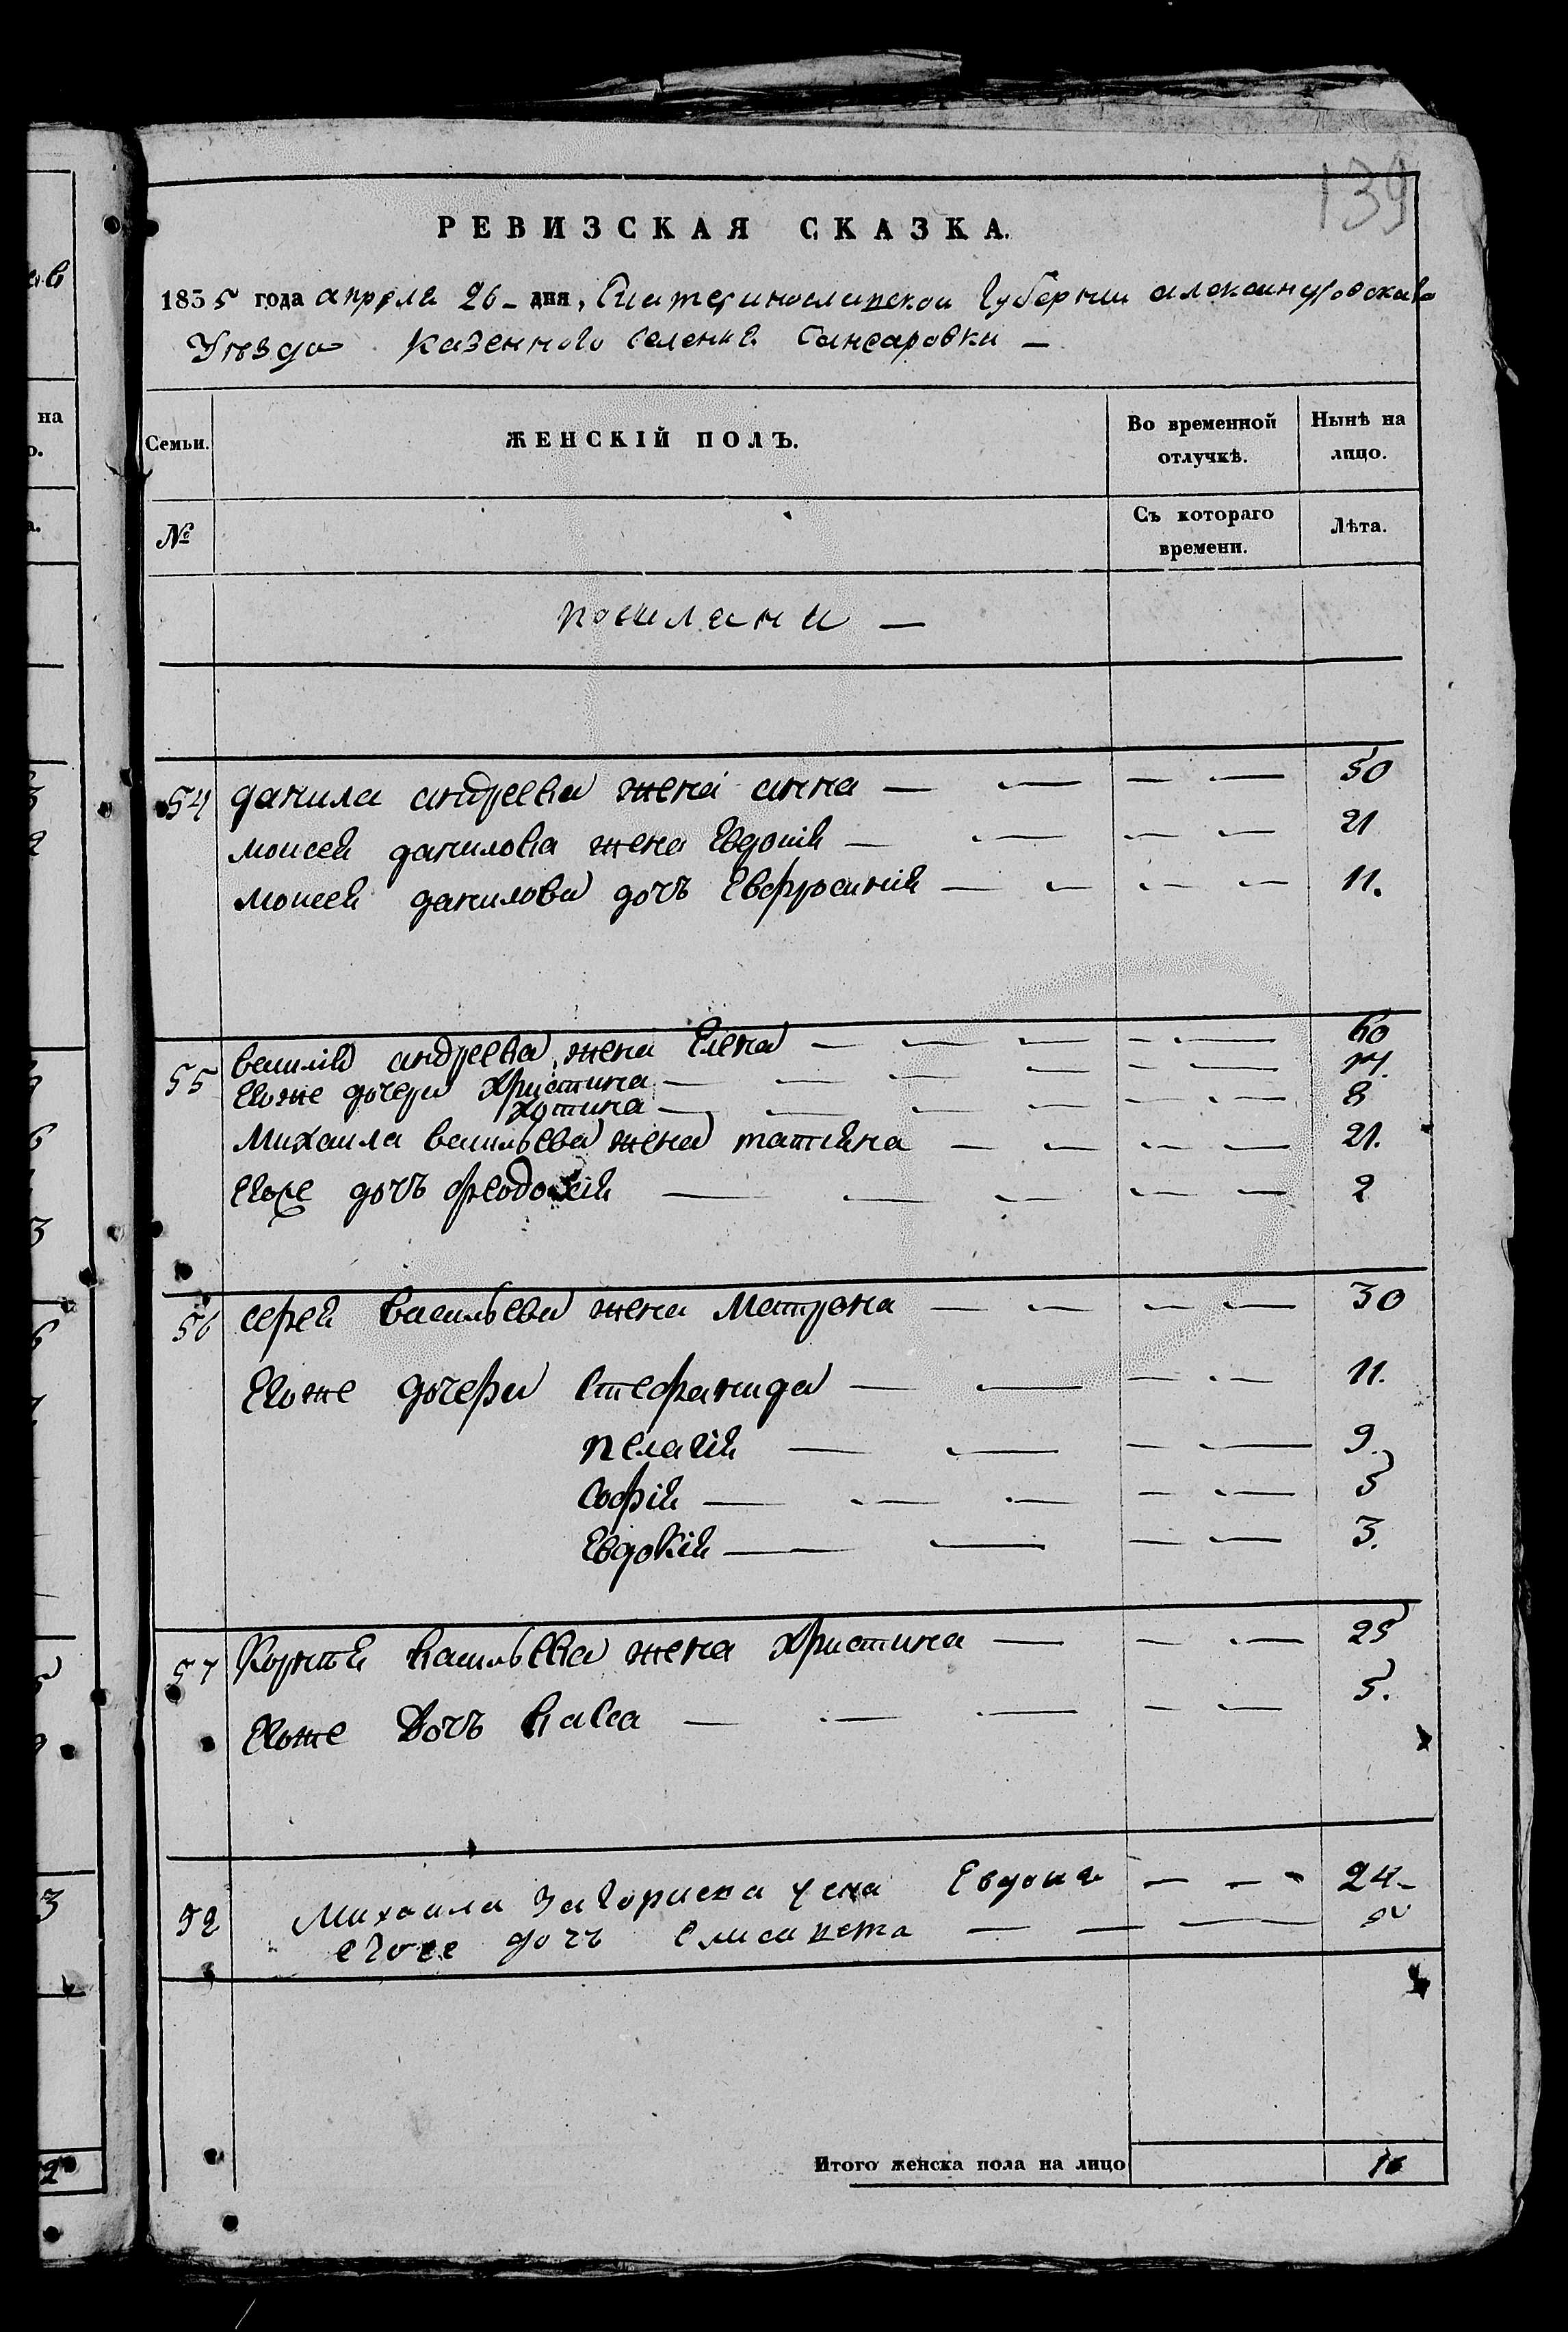 139
РЕВИЗСКАЯ СКАЗКА.
1835 года апреля 26 - дня, Екатеринославской Губернии александровскаго
Уѣзда казеннаго селения Гансаровки —
Семьи. ЖЕНСКІЙ ПОЛЪ. Во временной отлучкѣ. Нынѣ на лицо.
№ Съ котораго времени. Лѣта.
поселяни —
54 данила андреева жена анна — — — — 50
моисея данилова жена Евдокія — — — — 21
моисея данилова дочь Евфросинія — — — — 11.
55 василія андреева жена Елена — — — — — 60
Егоже дочери Христина — — — — — —
хотина — — — — — — 8
Михаила васильева жена татіяна — — — — 21.
Егоже дочь феодосія — — — — — 2
56 сергея васильева жена Матрена — — — — 30
Егоже дочери Стефанида — — — — 11.
пелагія — — — — 9.
Софія — — — — — 5
Евдокія — — — — 3.
57 васильева жена Христина — — — 25
Егоже дочь васса — — — — — 5.
Михаила жена Евдокия — — - 24-
егоже дочь елисавета — — —
Итого женска пола на лицо 16